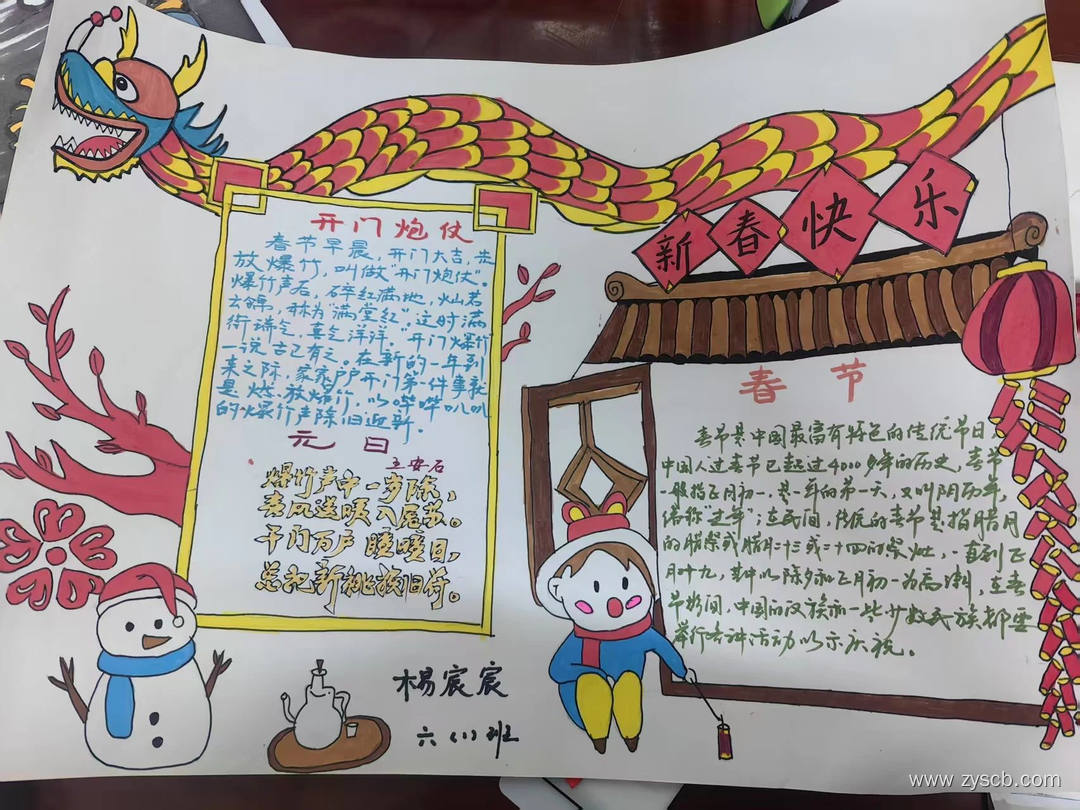 新春快乐
开门炮仗
春节早晨,开门大吉,先
放爆竹,叫做"开门炮仗"。
爆竹声后,碎红满地,灿若
云锦,称为"满堂红"。这时满
街瑞气,喜气洋洋。开门爆竹
一说古已有之。在新的一年到
来之际,家家户户开门第一件事就
是燃放爆竹,以哔哔叭叭
的爆竹声除旧迎新。
元日
王安石
爆竹声中一岁除,
春风送暖入屠苏。
千门万户曈曈日,
总把新桃换旧符。
春节
春节是中国最富有特色的传统节日,
中国人过春节已超过4000多年的历史,春节
一般指正月初一,是一年的第一天,又叫阴历年,
俗称"过年";在民间,传统的春节是指腊月
的腊祭或腊月二十三或二十四的祭灶,一直到正
月十九,其中以除夕和正月初一为高潮,在春
节期间,中国的汉族和一些少数民族都要
举行各种活动以示庆祝。
杨宸宸
六(1)班
www.zyscb.com